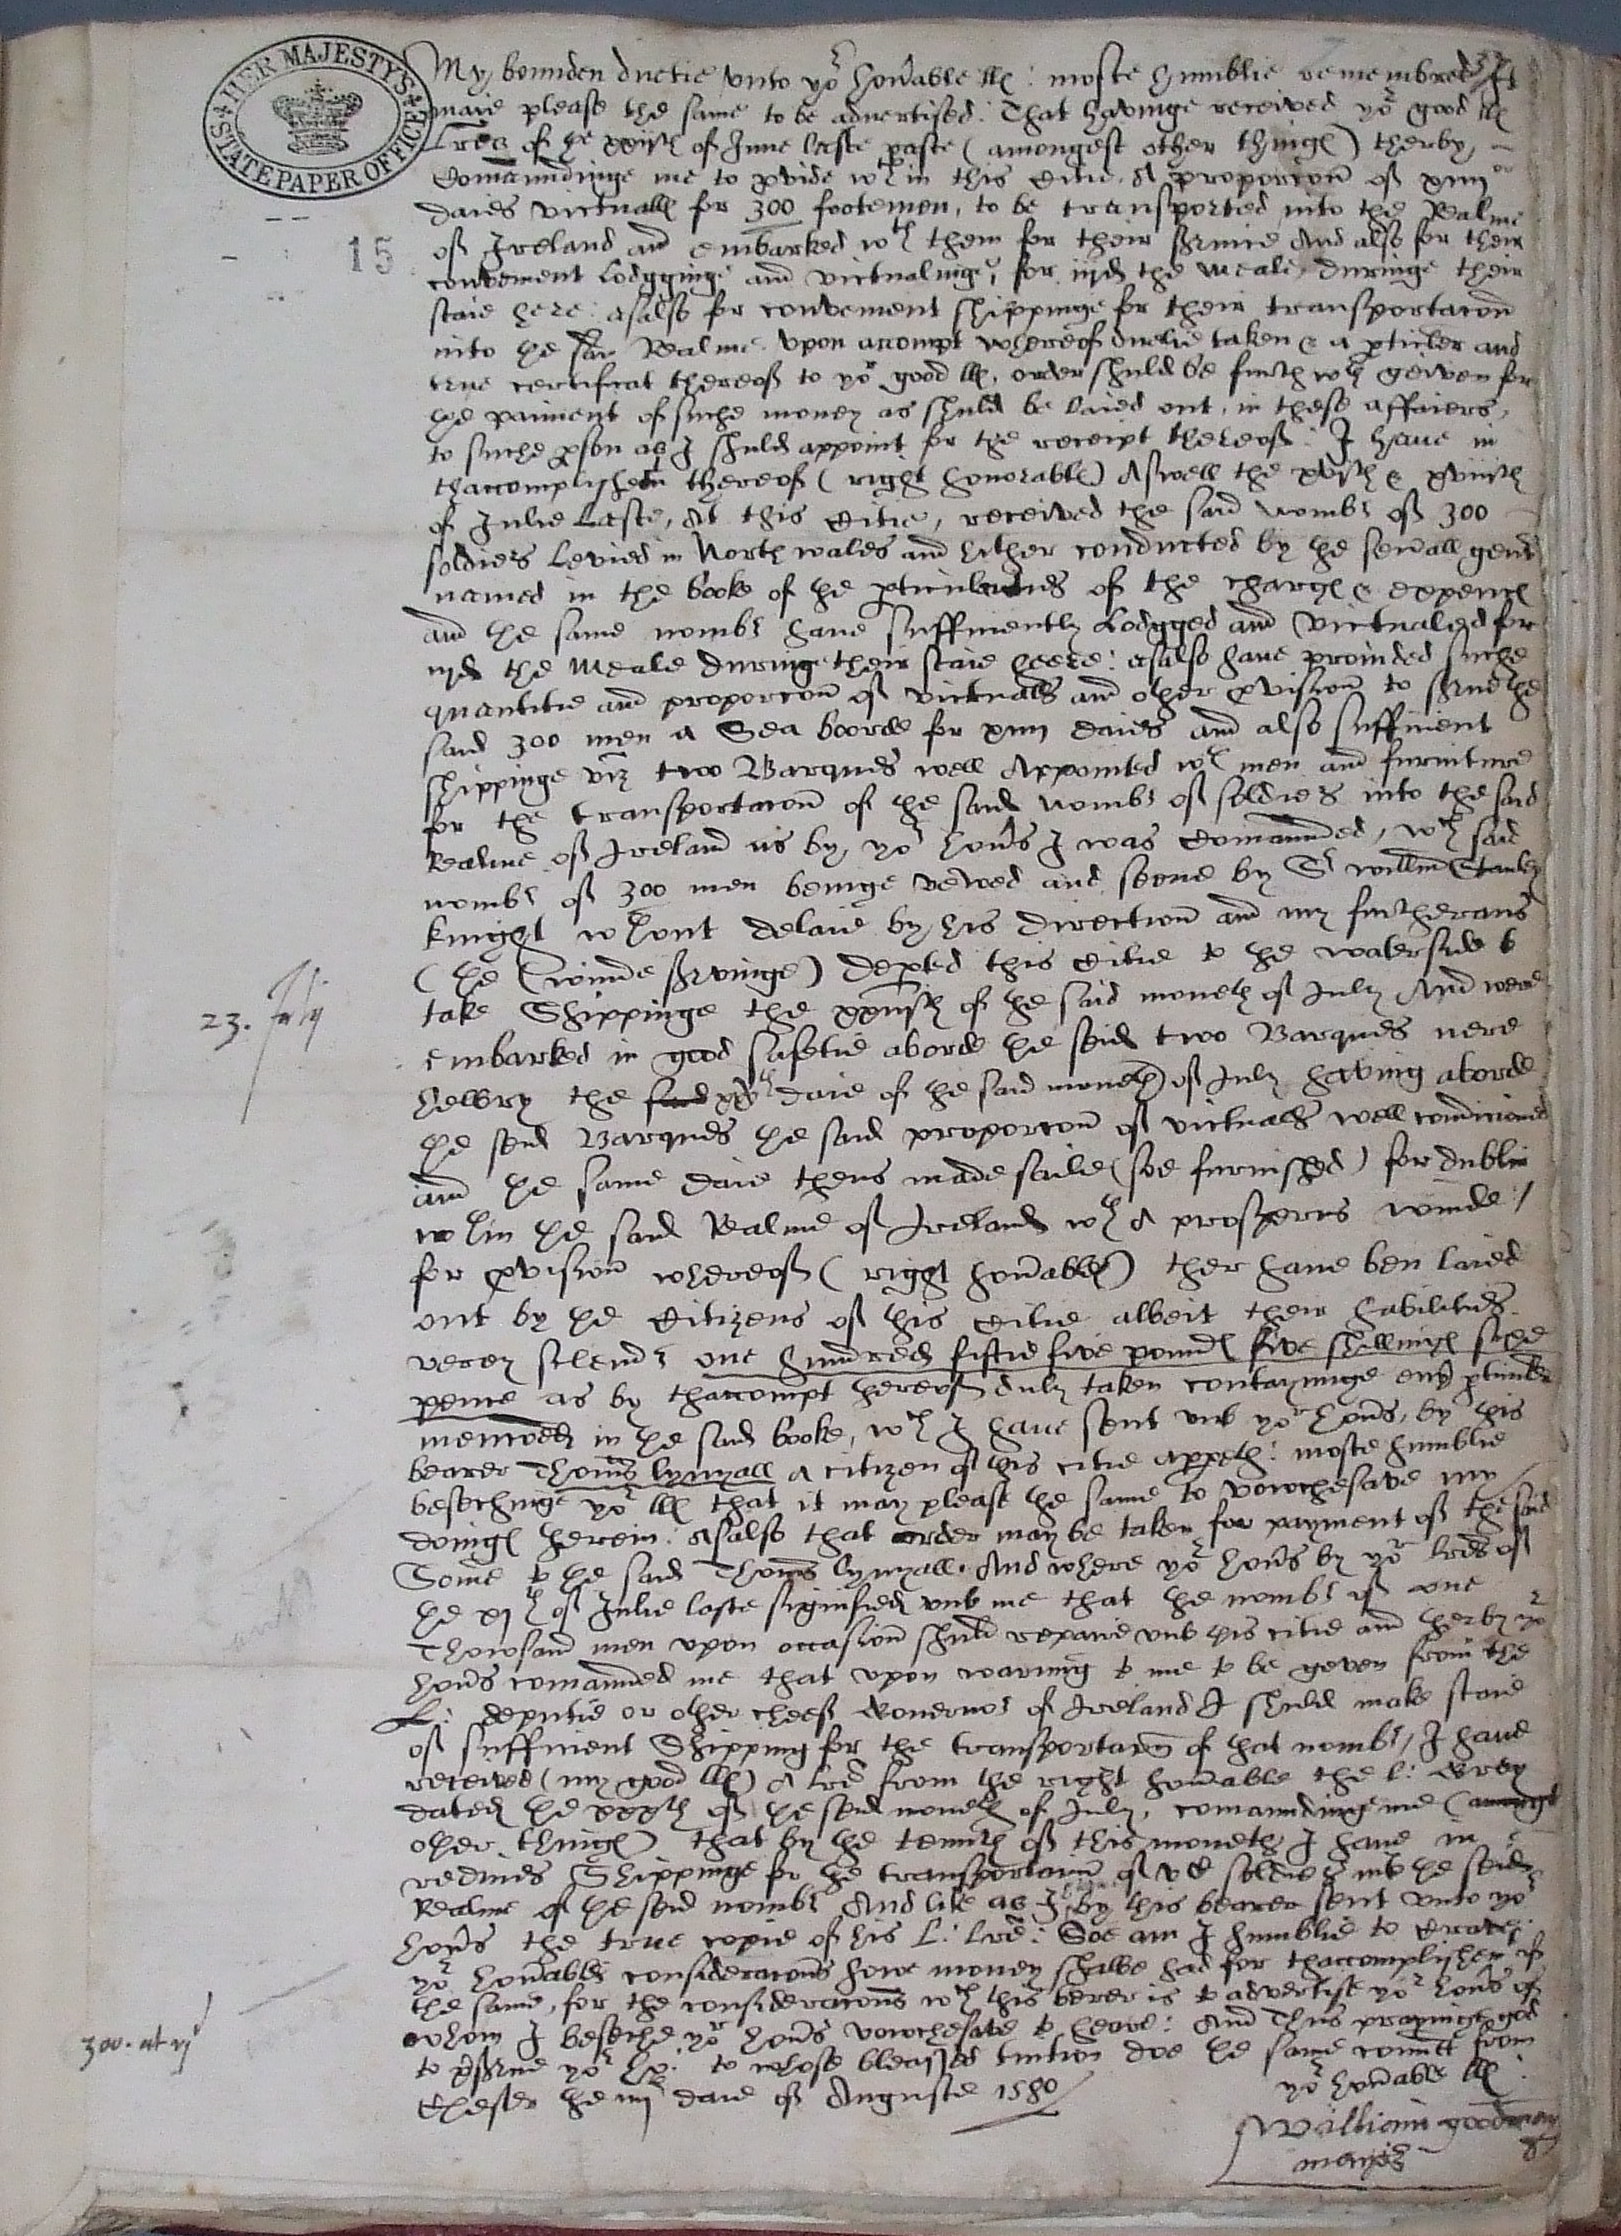 HER MAJESTY'S
STATE PAPER OFFICE
15
My bounden duetie unto yor honable ll: moste humblie remembred It
maie please the same to be advertised. That havinge received yor good ll
lres of the of June laste paste (amongest other things) therby
Comaundinge me to pvide wth in this Citie A proporcon of xiiij
daies victualls for 300 footemen, to be transported into the Realme
of Ireland and embarked wth them for their service And also for their
convenient Lodgginge and victualinge, for iijd the meale, duringe their
staie here: Asalso for convenient shippinge for their transportacon
into the said Realme. Upon accompt whereof duelie taken & a pticler and
true certificat thereof to yor good ll, order shuld be furthwth geiven for
the paiment of suche money as shuld be laied out, in these affaiers,
to suche pson as I shuld appoint for the receipt thereof: I have in
thaccomplishemt thereof (right honorable) Aswell the xvijth & xviijth
of Julie laste, At this Citie, received the said nombr of 300
soldiers levied in North wales and hither conducted by the sevall gent
named in the booke of the pticularities of the charges & expences
and the same nombr have sufficiently Lodgged and victualed for
iijd the meale duringe their staie heere: Asalso have provided suche
quantitie and proporcon of victualls and other pvision to serve the
said 300 men a Sea boorde for xiiij daies and also sufficient
shippinge viz two Barques well Appointed wth men and furniture
for the transportacon of the said nombr of soldiers into the said
Realme of Ireland as by yor honrs I was Comaunded, wch said
nombr of 300 men beinge vewed and seene by Sr willm Stanley
knight wthout delaie by his direction and my furtherans
(the winde servinge) depted this Citie to the waterside to
take Shippinge the xxiijth of the said moneth of July And were
23. July
embarked in good safetie aborde the seid two Barques nere
hilbry the said xxvth daie of the said moneth of July having aborde
the seid Barques the said proporcon of victualls well condicioned
and the same daie thens made saile (soe furnished) for dublin
wthin the said Realme of Ireland wth A prosperus winde /
for pvision whereof (right honable) ther have ben laied
out by the Citizens of this Citie albeit their habilities
verey sclendr one hundred fiftie five pounds five shillings sixe
pence as by thaccompt hereof duly taken contayninge evy pticuler
menconed in the said booke, wch I have sent unto yor honrs, by this
bearer Thoms lynyall A citizen of this citie appeth: moste humblie
besechinge yor ll that it may please the same to vowchesave my
doings herein: Asalso that order may be taken for payment of the said
Some to the said Thoms lynyall. And where yor honrs by yor lres of
the xjth of Julie laste signified unto me that the nombr of one
Thowsand men upon occasion shuld repaire unto this citie and therby yor
honrs comaunded me that upon warning to me to be geven from the
L: deputie or other cheef Governor of Ireland I shuld make staie
of sufficient Shipping for the transportacon of that nombr, I have
received (my good ll) A lre from the right honable the L: Grey
dated the xxxth of the seid moneth of July, comaundinge me (amongst
other things) that by the tennth of this moneth I have in
redines Shippinge for the transportacon of vC soldiers into the seid
Realme of the seid nombr And like as I have by this bearer sent unto yor
honrs the true copie of his L: lre: Soe am I humblie to Crave
yor honable consideracons howe money shalbe had for thaccomplishemt of
the same, for the consideracons wch this berer is to advertise yor honrs of
whom I beseche yor honrs vowchesave to heare: And Thus prayinge god
300. at ijd
to pserve yor Ho: to whose blessed tuition doe the same comitt from
Chester the iiij daie of Auguste 1580 /
yor honable ll:
William goodman
mayor